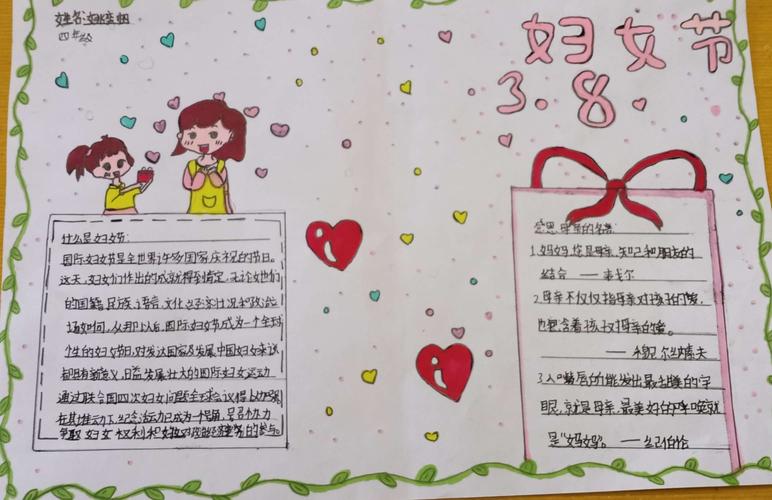 姓名:
四年级
妇女节
3.8
什么是妇女节:
国际妇女节是全世界许多国家庆祝的节日。
这天,妇女们作出的成就得到肯定,无论她们
的国籍,民族、语言、文化、经济状况和政治立
场如何,从那以后,国际妇女节成为一个全球
个生的妇女节日,对发达国家及发展中国妇女来说
都有新意义,日益发展壮大的国际妇女运动
通过联合国四次妇女问题全球会议得以加强
在其推动下,纪念活动已成为一个号角,号召努力
争取妇女权利和妇女对政治经济事务的参与。
感恩母亲的名言:
1.妈妈,您是母亲、知己和朋友的
结合 ——泰戈尔
2.母亲不仅仅指母亲对孩子的爱,
也包含着孩子对母亲的爱。
3.人嘴唇的能发出最甜美的字
眼,就是母亲,最美好的呼唤就
是"妈妈"。——纪伯伦